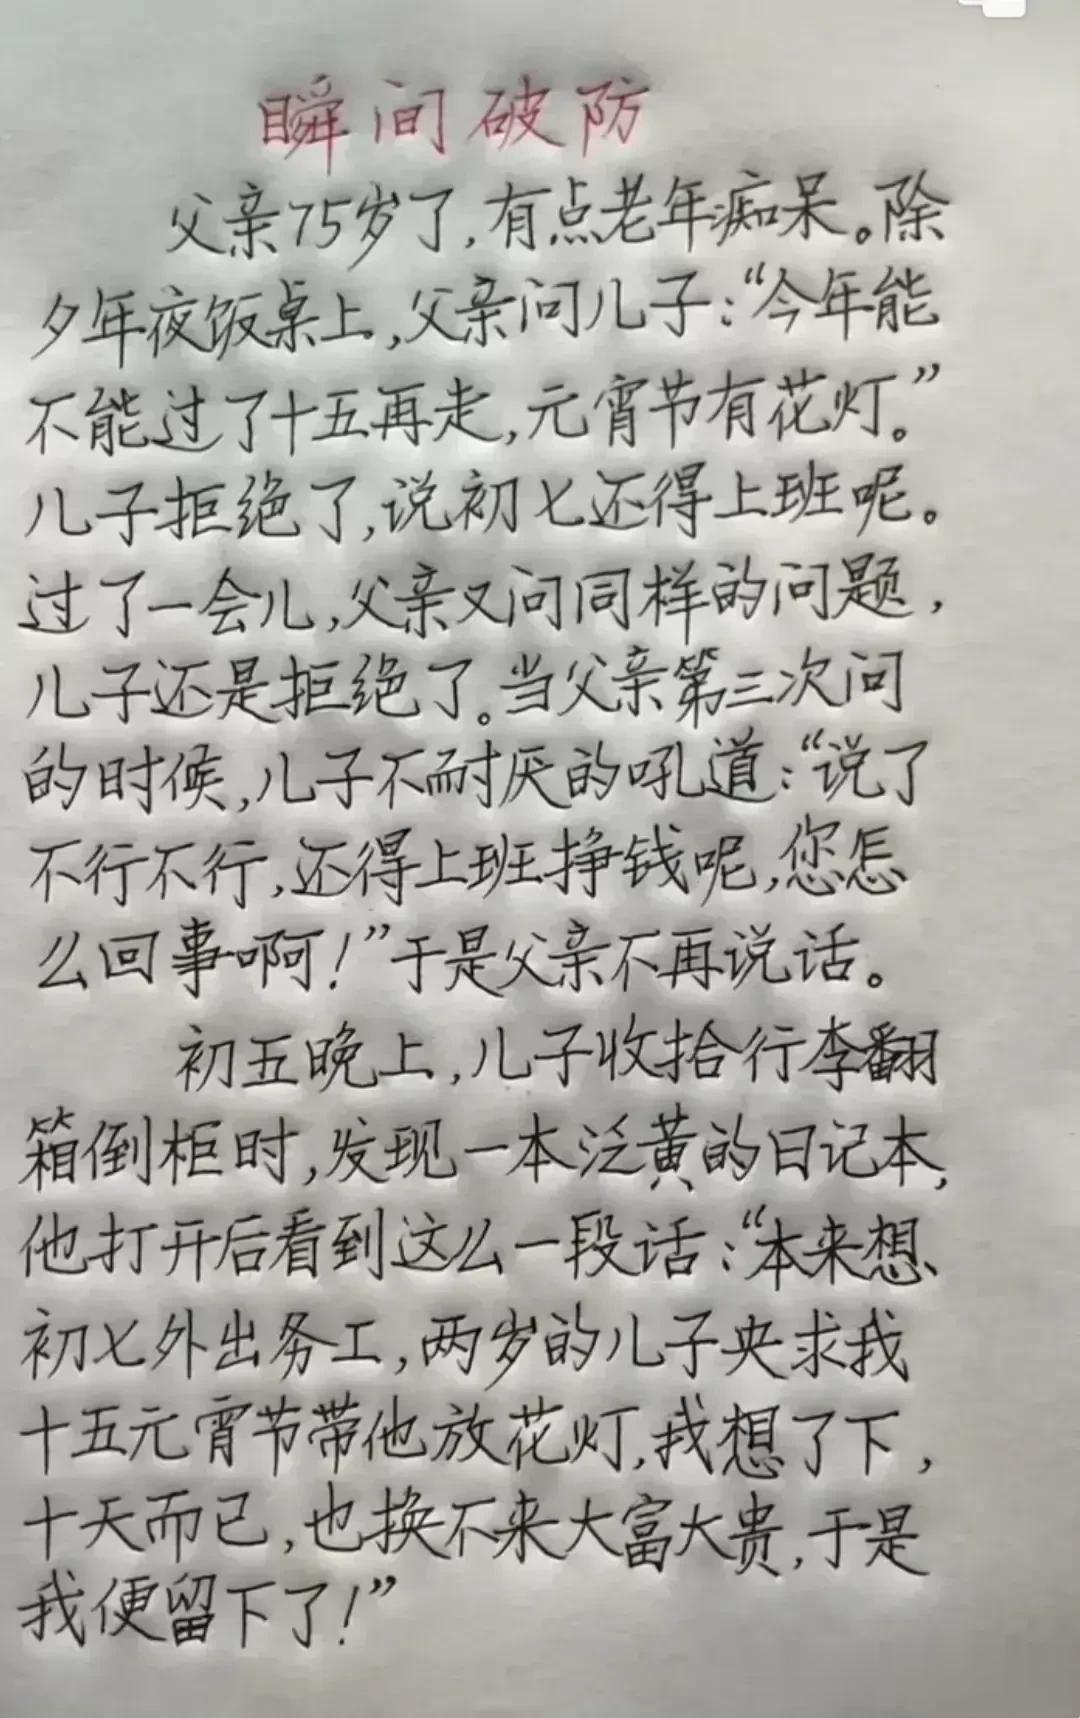 瞬间破防
父亲75岁了,有点老年痴呆。除
夕年夜饭桌上,父亲问儿子:“今年能
不能过了十五再走,元宵节有花灯。”
儿子拒绝了,说初七还得上班呢。
过了一会儿,父亲又问同样的问题,
儿子还是拒绝了。当父亲第三次问
的时候,儿子不耐厌的吼道:“说了
不行不行,还得上班挣钱呢,您怎
么回事啊!”于是父亲不再说话。
初五晚上,儿子收拾行李翻
箱倒柜时,发现一本泛黄的日记本,
他打开后看到这么一段话:“本来想
初七外出务工,两岁的儿子央求我
十五元宵节带他放花灯,我想了下,
十天而已,也换不来大富大贵,于是
我便留下了!”